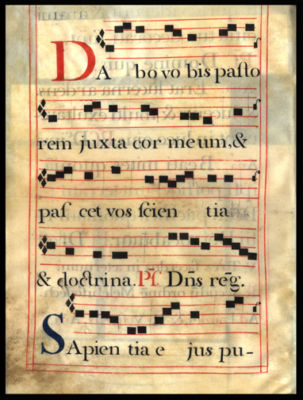 DA bo vo bis pasto
rem juxta cor meum. &
pas cet vos scien tia
& doctrina. Ps. Dn̄s reg̃.
SApien tia e jus pu-